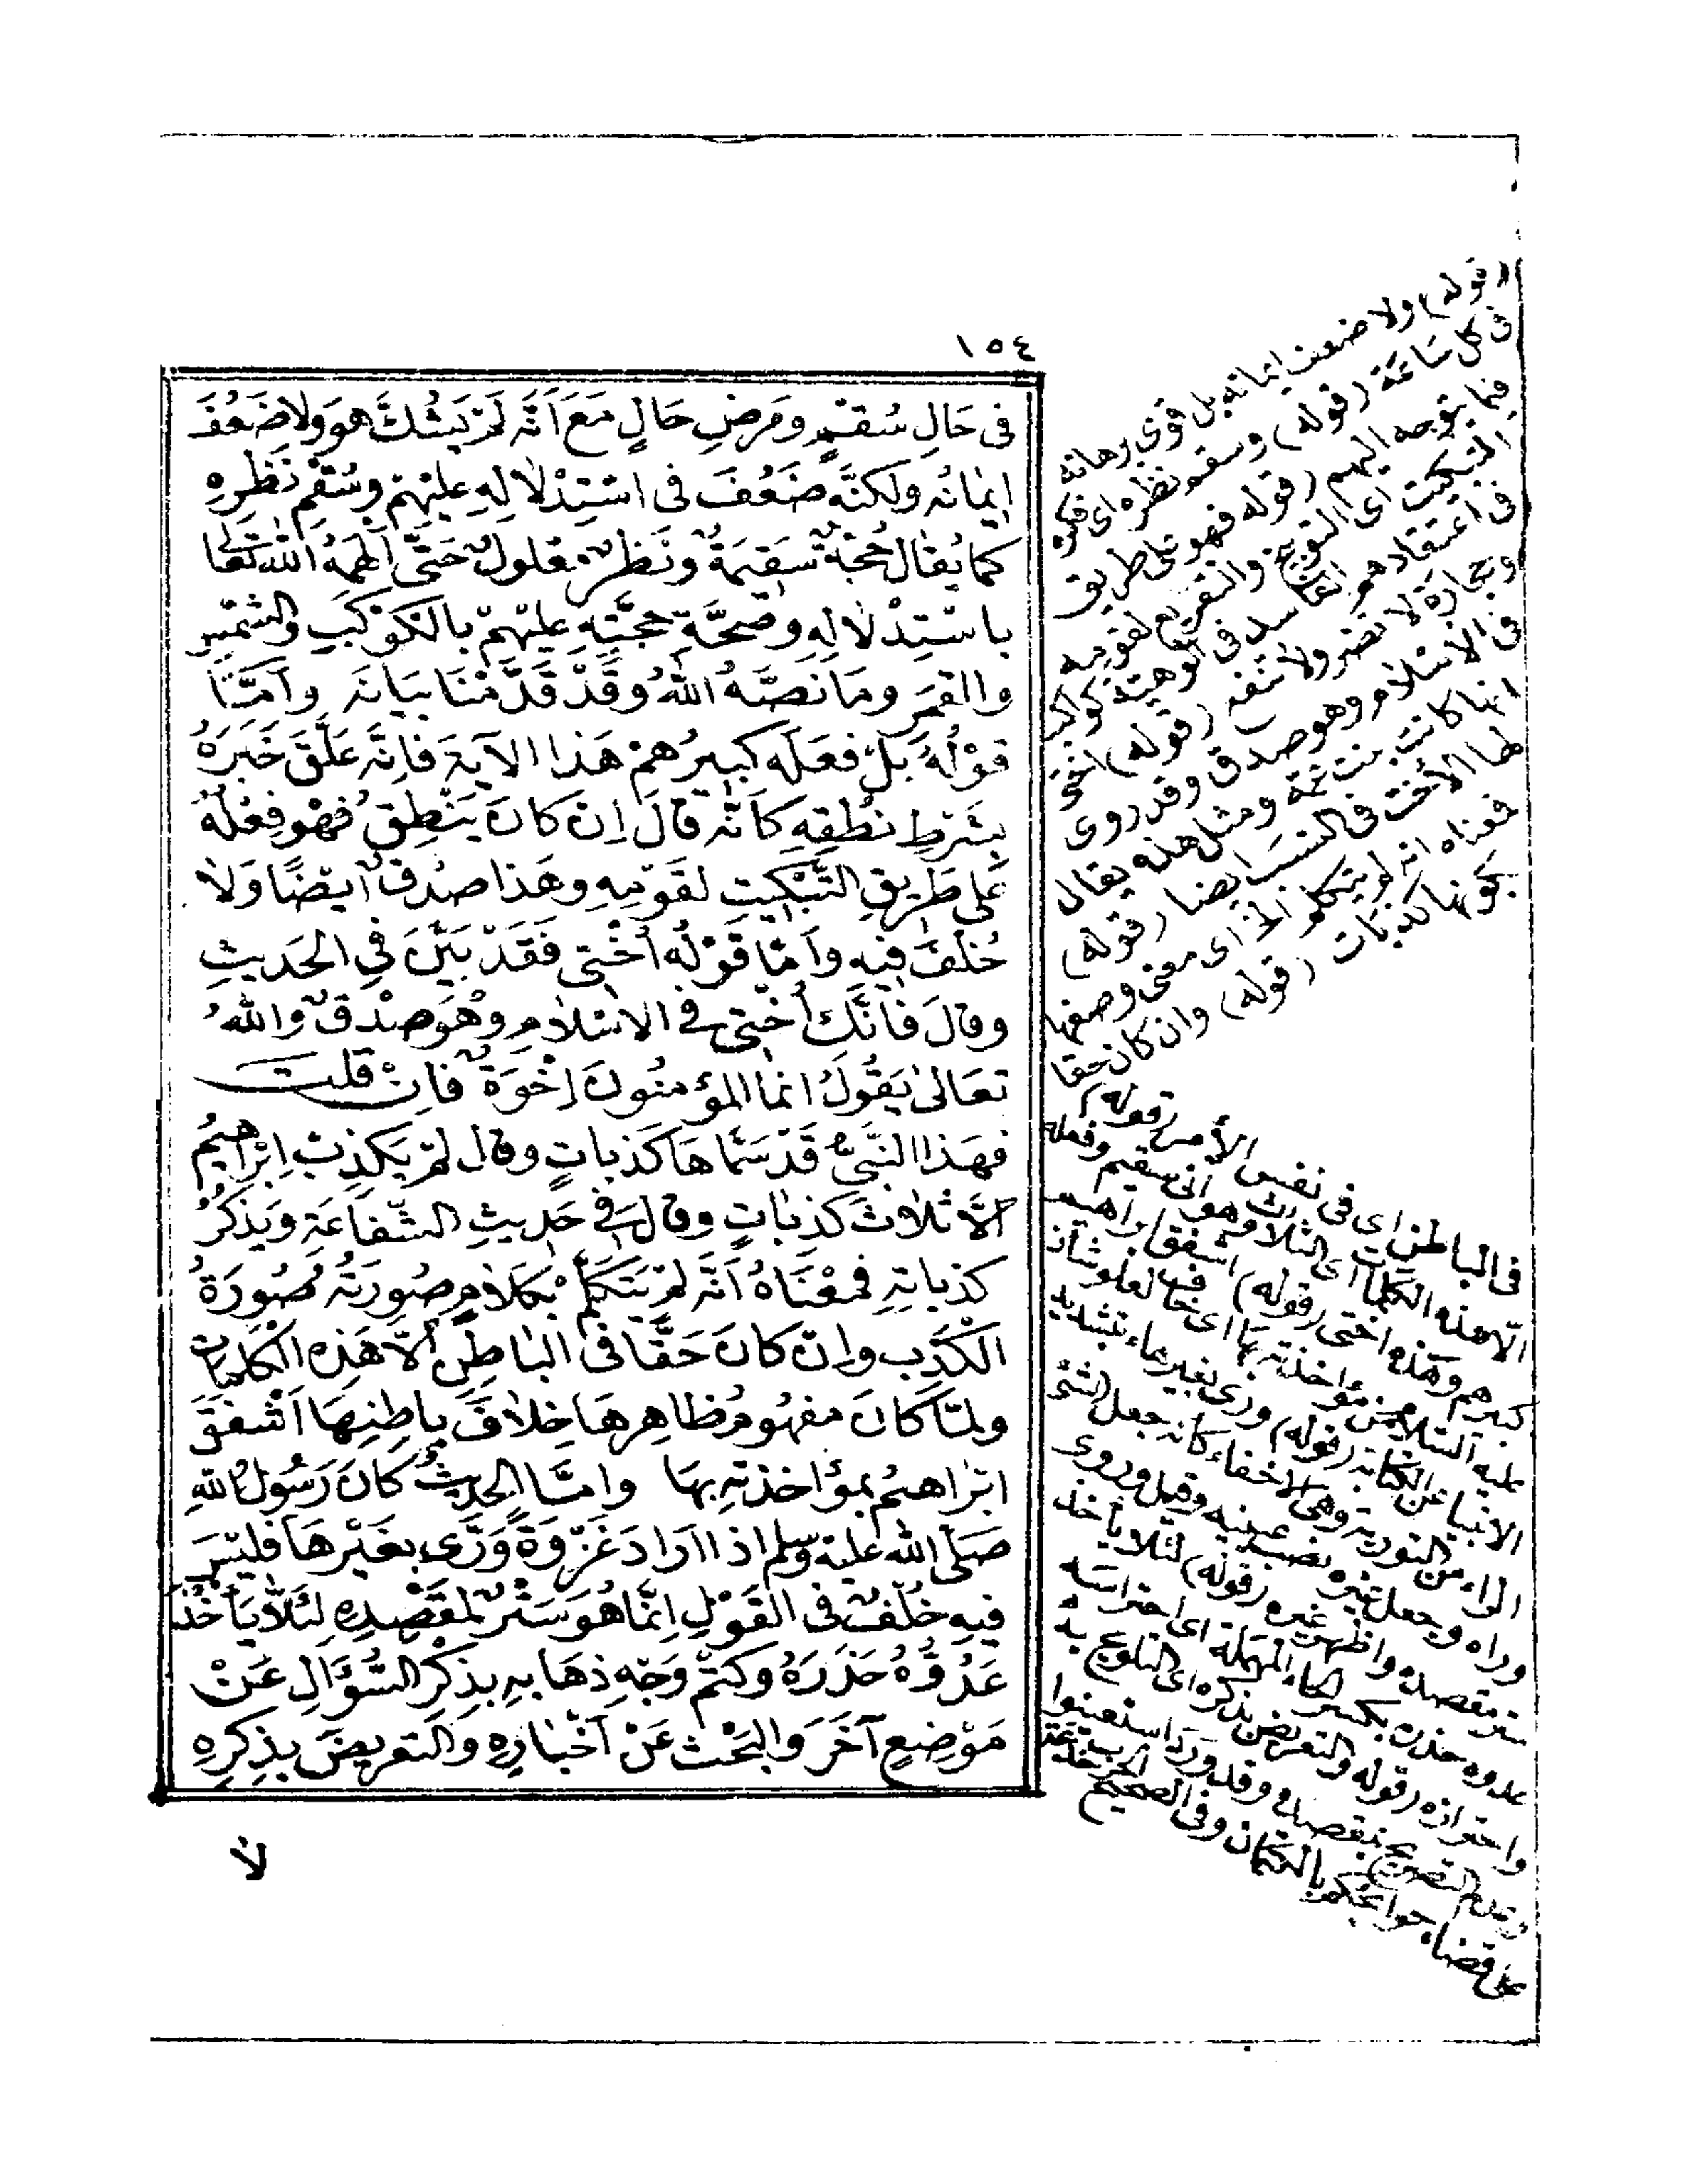 ١٥٤
فى حَالِ سُقْمٍ ومَرَضِ حَالٍ مَعَ اَنَّه لَمْ يَشُكَّ هوَ ولا ضَعُفَ
ايمانُه ولكنَّه ضَعُفَ فى اسْتِدْلالِهِ عليْهِمْ وسُقْمِ نَظَرِهِ
كما يُقالُ حُجّةٌ سَقِيمَةٌ ونَظَرٌ معلولٌ حَتَّى اَلْهَمَهُ اللهُ تَعَالَى
باسْتِدْلالِهِ وصِحَّةِ حُجَّتِهِ عليْهِمْ بالكَوْكَبِ والشَّمْسِ
والقمَرِ ومَا نَصَّهُ اللهُ وقَدْ قَدَّمْنَا بَيَانَه وأمّا
قوْلُهُ بَلْ فعَلَه كبيرُهمْ هَذا الآيَةَ فَاِنَّه عَلَّقَ خَبَرَهُ
بشَرْطِ نُطْقِهِ كأنّه قالَ اِن كانَ يَنْطِقُ فهْو فِعْلُهُ
عَلى طَرِيقِ التَّبْكِيتِ لقَوْمِهِ وهَذا صِدْقٌ ايضًا وَلا
خُلْفَ فيهِ وأمّا قَوْلُه اُخْتِى فَقَدْ بَيَّنَ فِي الحَدِيثِ
وقالَ فَاِنَّكِ أُخْتِى في الاسْلامِ وهُوَ صِدْقٌ واللهُ
تعَالىٰ يَقُولُ انما المُؤمنُونَ اِخْوَةٌ فَاِنْ قلتَ
فهَذا النَّبِيُّ قَدْ سَمّاهَا كَذباتٍ وقال لَمْ يَكْذِبْ اِبْراهِيمُ
اِلَّا ثلاثَ كَذبَاتٍ وقالَ في حَدِيثِ الشّفاعَةِ ويَذْكُرُ
كذباتِهِ فمعْنَاهُ أَنَّه لَمْ يَتَكَلَّمْ بكَلامٍ صُورَتُه صُورَةُ
الْكَذِبِ وان كانَ حَقًّا فى البَاطِنِ اِلّا هَذِهِ الكلمات
ولمّا كَانَ مفهُومُ ظاهِرِهَا خِلافَ باطِنِهَا اَشْفَقَ
ابْرَاهيمُ بمؤاخذتِهِ بهَا وامّا الحديثُ كَانَ رَسُولُ اللهِ
صَلَّى اللهُ عليْهِ وسلم اذا ارَادَ غَزْوَةً وَرَّى بِغَيْرِهَا فَلَيْسَ
فيهِ خُلْفٌ فى القَوْلِ اِنَّما هُوَ سَتْرٌ لمَقْصِدِهِ لِئَلَّا يَأْخُذَ
عَدُوُّهُ حَذَرَهُ وكَتْمُ وَجْهِ ذهَابِهِ بِذِكْرِ السُّؤَالِ عَنْ
مَوْضِعٍ آخَرَ والبَحْث عَنْ اَخْبَارِهِ والتعريضَ بِذِكرِهِ
لاَ
(قوله) ولا ضعف ايمانه بل قوى برهانه
فى كل ساعة (قوله) وسقم نظره اى فكره
فيما يتوجه اليهم (قوله) فهو على طريق
التبكيت اى التوبيخ والتقريع لقومه
فى اعتقادهم الفاسد فى الوهية كواكب
وحجارة لا تضر ولا تنفع (قوله) اختى
فى الاسلام وهو صدق وقد روى
انها كانت بنت عمه ومثل هذه يقال
لها الاخت فى النسب ايضا (قوله)
فمعناه انه لم يتكلم الخ اى معنى وصفها
بكونها كذبات (قوله) وان كان حقا
فى الباطن اى فى نفس الأمر (قوله)
الا هذه الكلمات اى الثلاث وهى انى سقيم وفعله
كبيرهم وهذه اختى (قوله) اشفق ابراهيم
عليه السلام من مؤاخذته بها اى خاف لعلو شأن
الانبياء عن الكناية (قوله) ورى بغيرها بتشديد
الراء من التورية وهى الاخفاء كانه جعل الشئ
وراه وجعل غيره نصب عينيه وقيل ورى
ستر مقصده واظهر غيره (قوله) لئلا يأخذ
عدوه حذره بكسر الحاء المهملة اى احتراسه
واحترازه (قوله) والتعريض بذكره اى التلويح به
وعدم التصريح بمقصده وقد ورد استعينوا
على قضاء حوائجكم بالكتمان وفى الصحيح الحرب خدعة